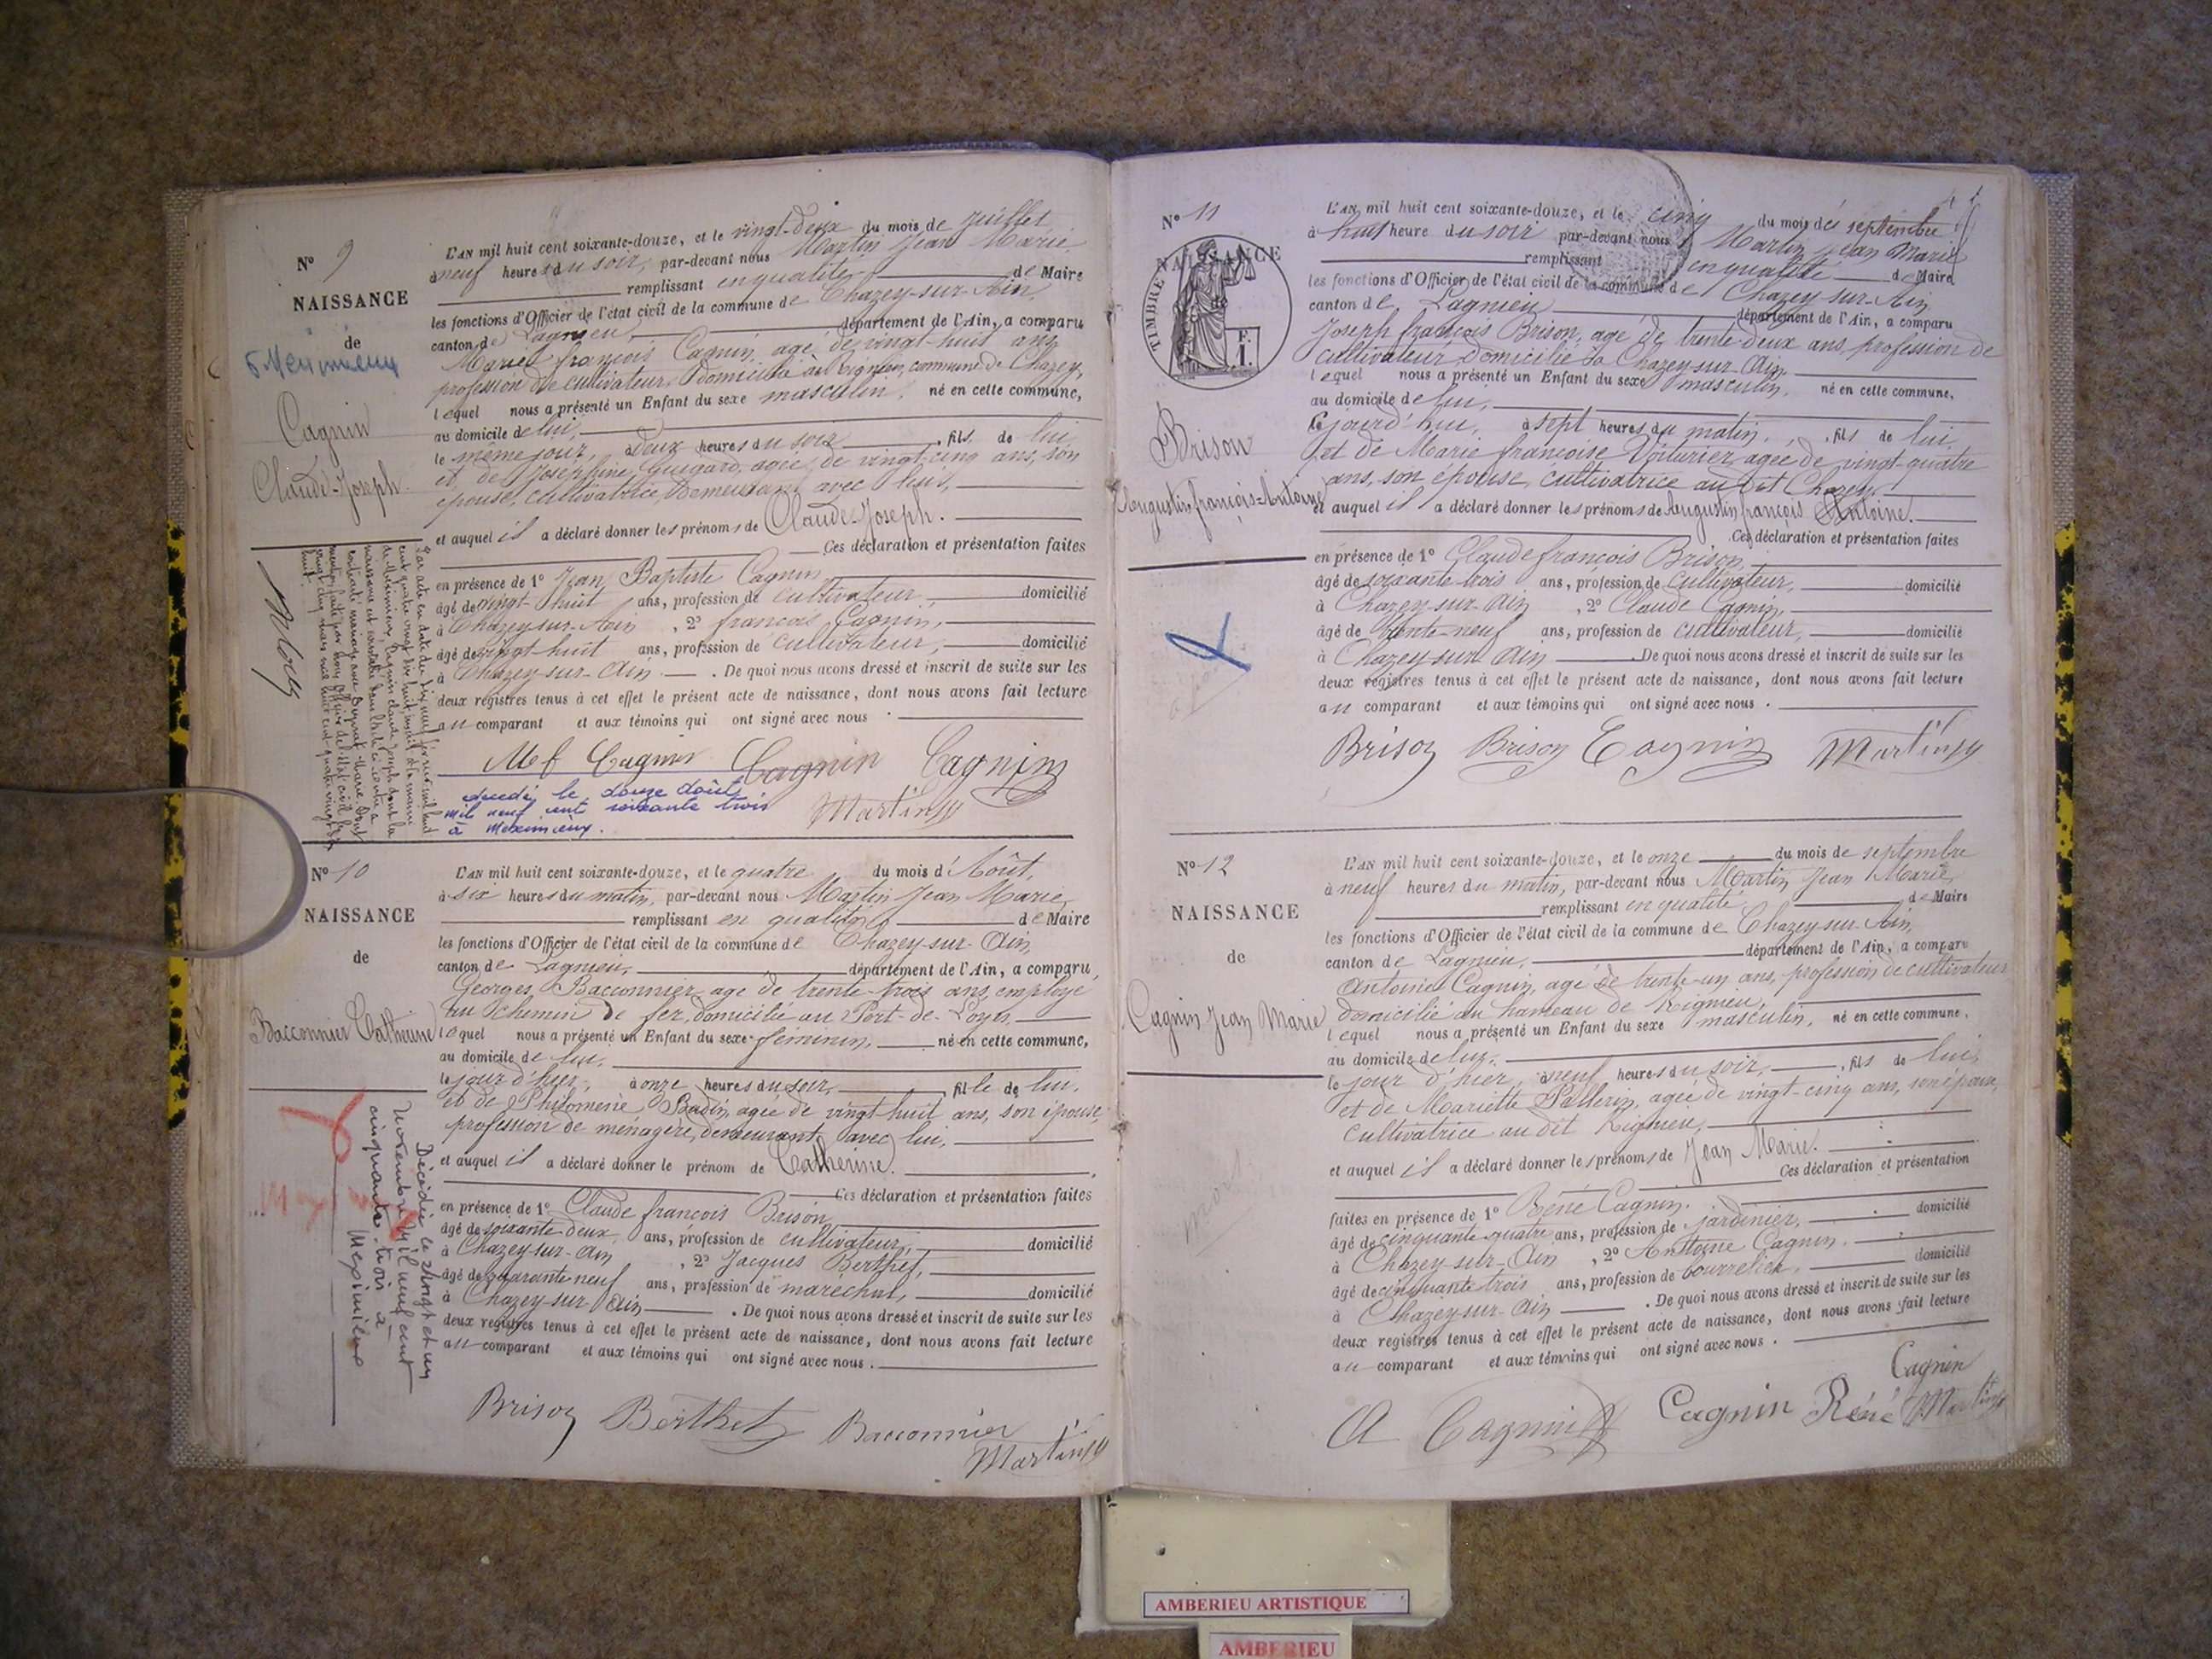 N° 9
NAISSANCE
de
Cagnin
Claude-Joseph
L'AN mil huit cent soixante-douze, et le vingt-deux du mois de Juillet
à neuf heures du soir, par-devant nous Martin Jean Marie
remplissant en qualité de Maire
les fonctions d'Officier de l'état civil de la commune de Chazey-sur-Ain,
canton de Lagnieu, département de l'Ain, a comparu
Marie françois Cagnin, agé de vingt-huit ans
profession de cultivateur, domicilié à Rignieu, commune de Chazey,
lequel nous a présenté un Enfant du sexe masculin, né en cette commune,
au domicile de lui,
le même jour, à deux heures du soir, fils de lui
et de Joséphine Guigard, agée de vingt-cinq ans, son
épouse, cultivatrice, demeurant avec lui,
et auquel il a déclaré donner les prénoms de Claude-Joseph.
Ces déclaration et présentation faites
en présence de 1° Jean Baptiste Cagnin
âgé de vingt-huit ans, profession de cultivateur, domicilié
à Chazey-sur-Ain, 2° françois Cagnin,
âgé de vingt-huit ans, profession de cultivateur, domicilié
à Chazey-sur-Ain. De quoi nous avons dressé et inscrit de suite sur les
deux registres tenus à cet effet le présent acte de naissance, dont nous avons fait lecture
au comparant et aux témoins qui ont signé avec nous.
Mef Cagnin Cagnin Cagnin
Martin
décédé le douze août
mil neuf cent soixante trois
à Meximieux.
N° 10
NAISSANCE
de
Bacconnier Catherine
L'AN mil huit cent soixante-douze, et le quatre du mois d'Août,
à six heures du matin, par-devant nous Martin Jean Marie,
remplissant en qualité de Maire
les fonctions d'Officier de l'état civil de la commune de Chazey-sur-Ain,
canton de Lagnieu, département de l'Ain, a comparu
Georges Bacconnier agé de trente-trois ans, employé
au chemin de fer, domicilié au Port-de-Loyes,
lequel nous a présenté un Enfant du sexe féminin, né en cette commune,
au domicile de lui,
le jour d'hier, à onze heures du soir, fille de lui,
et de Philomène Badin, agée de vingt-huit ans, son épouse,
profession de ménagère, demeurant avec lui,
et auquel il a déclaré donner le prénom de Catherine.
Ces déclaration et présentation faites
en présence de 1° Claude françois Brison
âgé de soixante-deux ans, profession de cultivateur, domicilié
à Chazey-sur-Ain, 2° Jacques Berthet,
âgé de quarante-neuf ans, profession de maréchal, domicilié
à Chazey-sur-Ain. De quoi nous avons dressé et inscrit de suite sur les
deux registres tenus à cet effet le présent acte de naissance, dont nous avons fait lecture
au comparant et aux témoins qui ont signé avec nous.
Brison Berthet Bacconnier
Martin
Décédée le vingt et un
novembre mil neuf cent
cinquante-trois à
Meximieux
N° 11
NAISSANCE
TIMBRE
Brison
Augustin-françois-Antoine
L'AN mil huit cent soixante-douze, et le cinq du mois de septembre
à huit heure du soir par-devant nous Martin Jean Marie
remplissant en qualité de Maire
les fonctions d'Officier de l'état civil de la commune de Chazey-sur-Ain
canton de Lagnieu département de l'Ain, a comparu
Joseph françois Brison, agé de trente-deux ans, profession de
cultivateur domicilié à Chazey-sur-Ain,
lequel nous a présenté un Enfant du sexe masculin, né en cette commune,
au domicile de lui,
jourd'hui, à sept heures du matin, fils de lui
et de Marie françoise Voiturier, agée de vingt-quatre
ans, son épouse, cultivatrice au dit Chazey,
et auquel il a déclaré donner les prénoms de Augustin françois Antoine.
Ces déclaration et présentation faites
en présence de 1° Claude françois Brison,
âgé de soixante-trois ans, profession de cultivateur, domicilié
à Chazey-sur-Ain, 2° Claude Cagnin,
âgé de trente-neuf ans, profession de cultivateur, domicilié
à Chazey-sur-Ain. De quoi nous avons dressé et inscrit de suite sur les
deux registres tenus à cet effet le présent acte de naissance, dont nous avons fait lecture
au comparant et aux témoins qui ont signé avec nous.
Brison Brison Cagnin Martin
N° 12
NAISSANCE
de
Cagnin Jean Marie
mort
L'AN mil huit cent soixante-douze, et le onze du mois de septembre
à neuf heures du matin, par-devant nous Martin Jean Marie,
remplissant en qualité de Maire
les fonctions d'Officier de l'état civil de la commune de Chazey-sur-Ain,
canton de Lagnieu, département de l'Ain, a comparu
Antoine Cagnin, agé de trente-un ans, profession de cultivateur
domicilié au hameau de Rignieu,
lequel nous a présenté un Enfant du sexe masculin, né en cette commune,
au domicile de lui,
le jour d'hier, à neuf heures du soir, fils de lui,
et de Mariette Pallerin, agée de vingt-cinq ans, son épouse,
cultivatrice au dit Rignieu,
et auquel il a déclaré donner les prénoms de Jean Marie.
Ces déclaration et présentation
faites en présence de 1° René Cagnin.
âgé de cinquante-quatre ans, profession de jardinier, domicilié
à Chazey-sur-Ain, 2° Antoine Cagnin.
âgé de cinquante-trois ans, profession de bourrelier, domicilié
à Chazey-sur-Ain. De quoi nous avons dressé et inscrit de suite sur les
deux registres tenus à cet effet le présent acte de naissance, dont nous avons fait lecture
au comparant et aux témoins qui ont signé avec nous.
Cagnin
A Cagnin Cagnin René Martin
AMBERIEU ARTISTIQUE
AMBERIEU